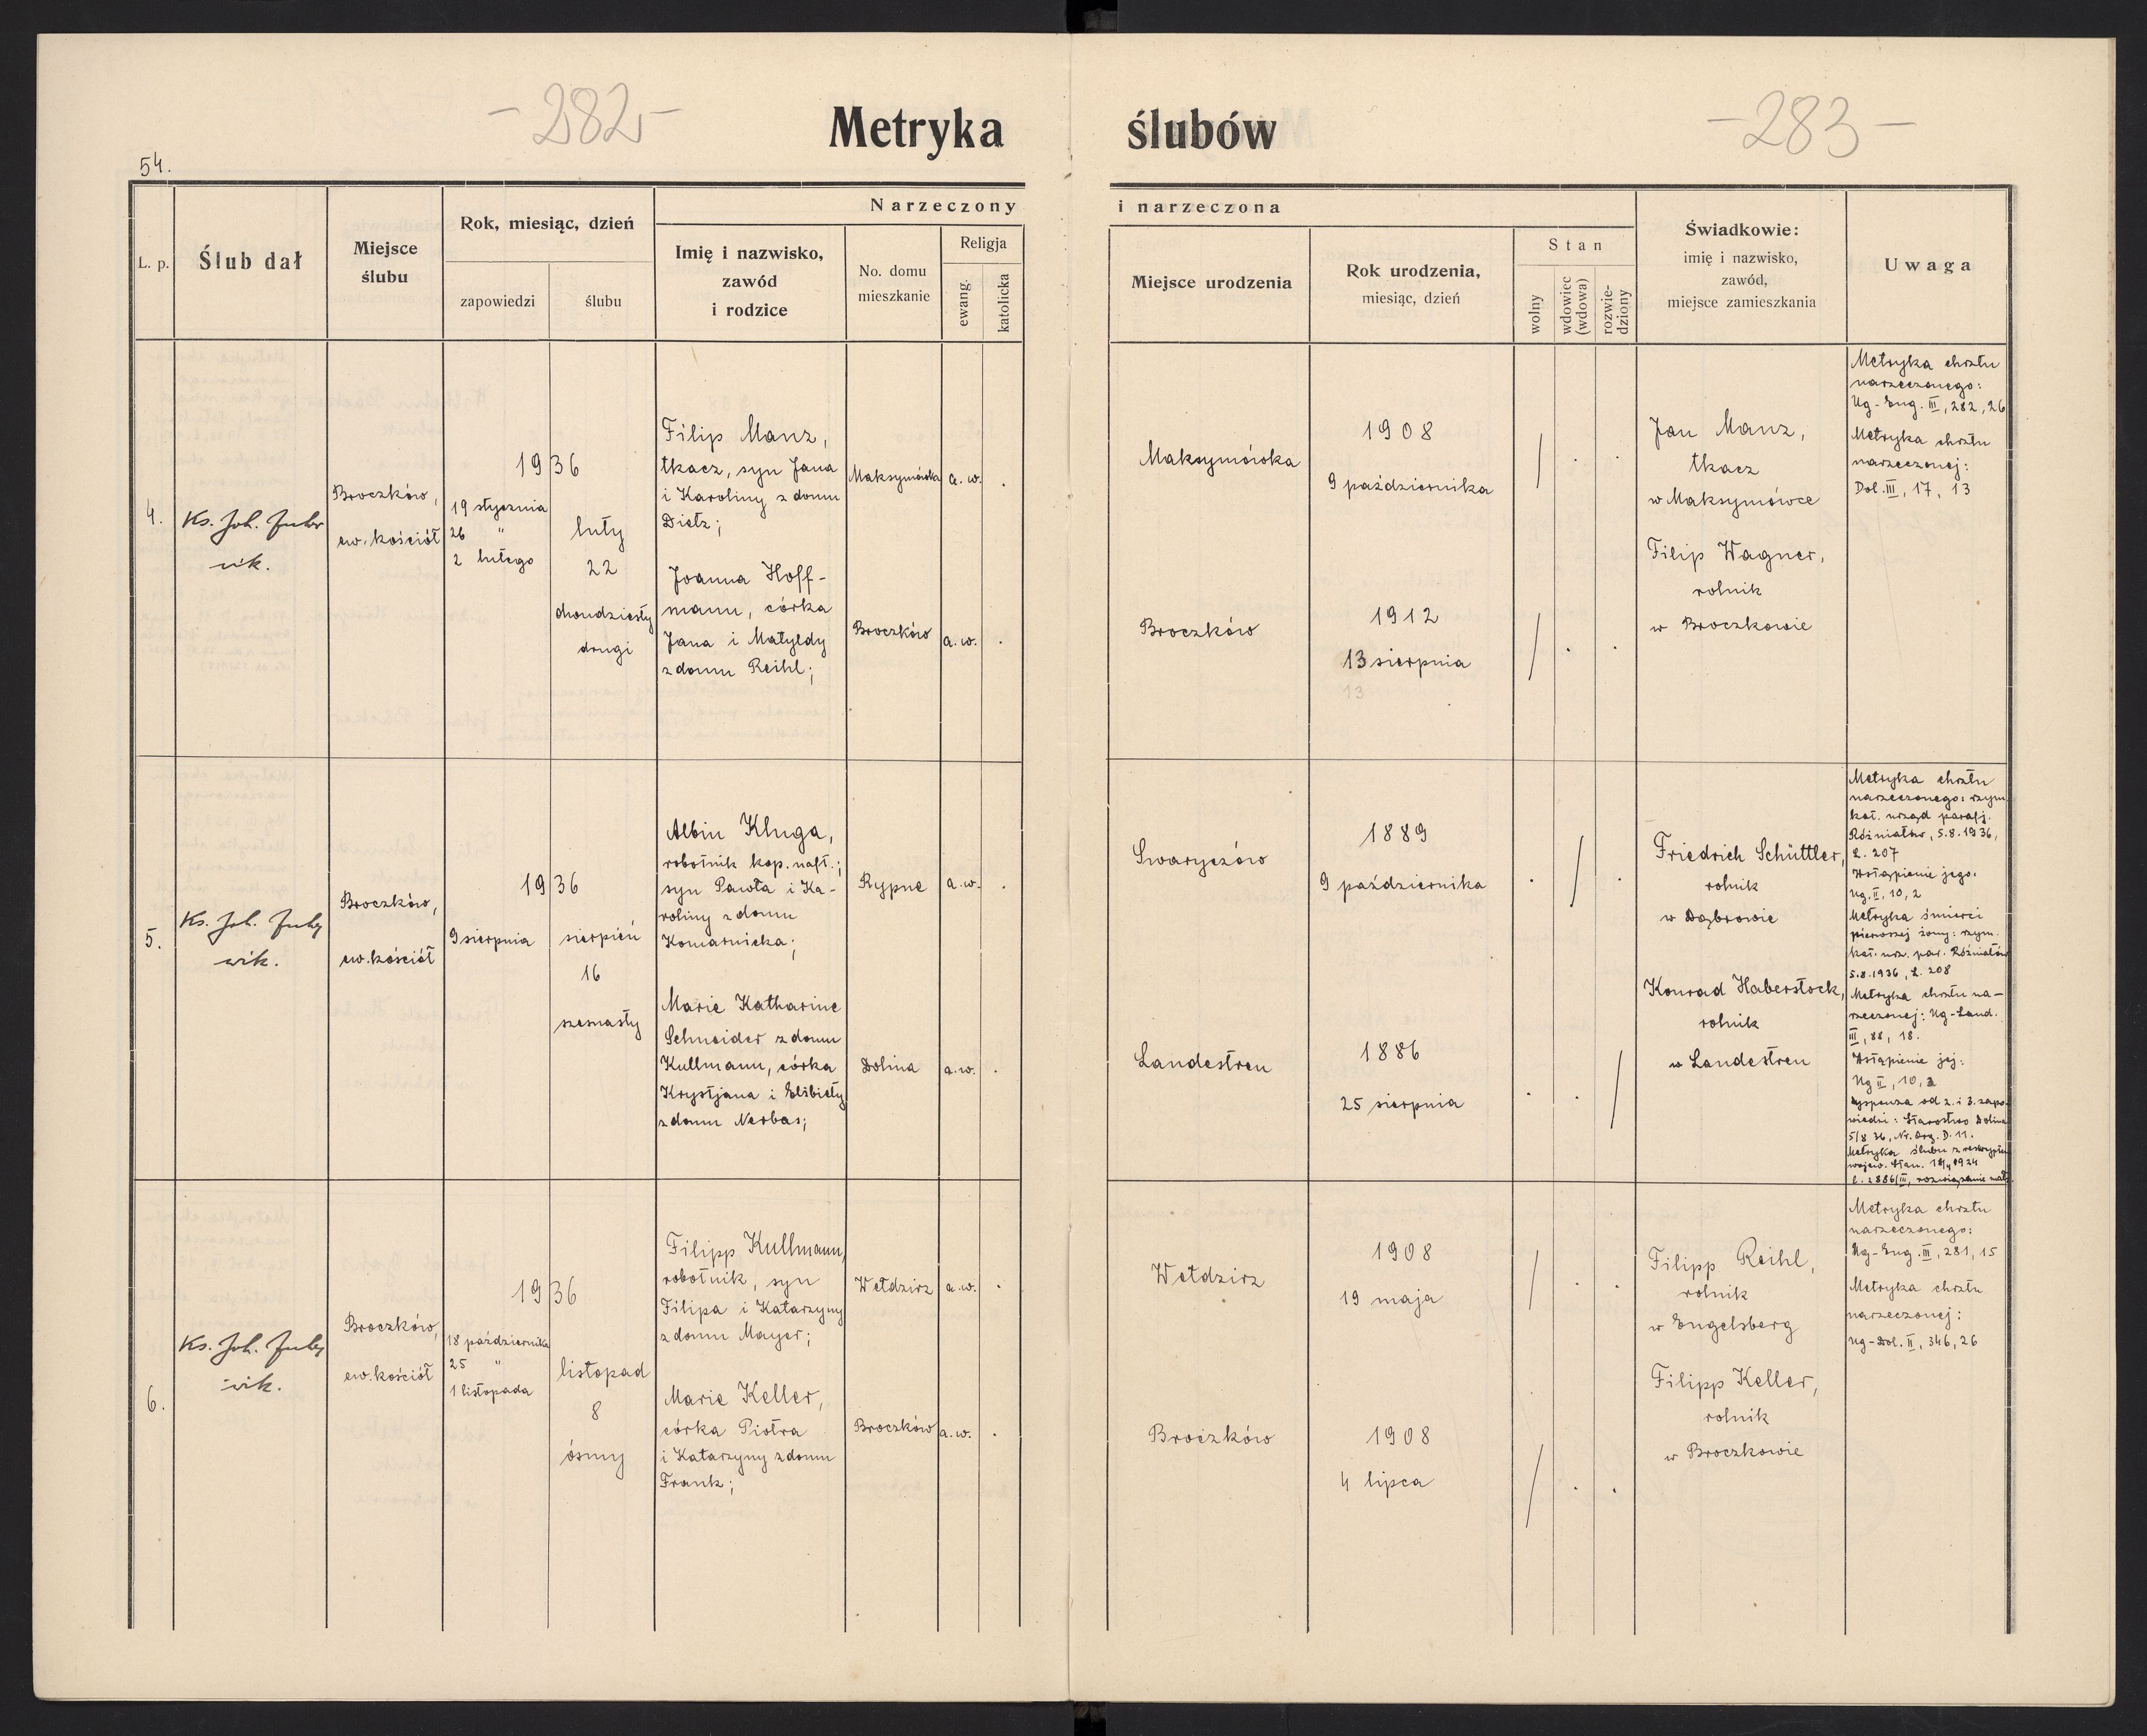 -282-
-283-
Metryka ślubów
54.
L. p.
Ślub dał
Miejsce
ślubu
Rok, miesiąc, dzień
zapowiedzi
ślubu
Narzeczony
Imię i nazwisko,
zawód
i rodzice
No. domu
mieszkanie
Religja
ewang.
katolicka
i narzeczona
Miejsce urodzenia
Rok urodzenia,
miesiąc, dzień
Stan
wolny
wdowiec
(wdowa)
rozwie-
dziony
Świadkowie:
imię i nazwisko,
zawód,
miejsce zamieszkania
Uwaga
4.
Ks. Joh.
wik.
Broczków,
ew. kościół
1936
19 stycznia
26 "
2 lutego
luty
22
dwudziesty
drugi
Filip Manz,
tkacz, syn Jana
i Karoliny z domu
Dietz;
Maksymówka
a. w.
Joanna Hoff-
mann, córka
Jana i Matyldy
z domu Reihl;
Broczków
a. w.
Maksymówka
1908
9 października
Broczków
1912
13 sierpnia
13
Jan Manz,
tkacz
w Maksymówce
Filip Wagner,
rolnik
w Broczkowie
Metryka chrztu
narzeczonego:
Ug-Eng. III, 282, 26
Metryka chrztu
narzeczonej:
Dol. III, 17, 13
5.
Ks. Joh.
wik.
Broczków,
ew. kościół
1936
9 sierpnia
sierpień
16
szesnasty
Albin Kluga,
robotnik kop. naft.;
syn Pawła i Ka-
roliny z domu
Komarnicka;
Rypne
a. w.
Marie Katharine
Schneider z domu
Kullmann, córka
Krystjana i Elżbiety
z domu Nerbas;
Dolina
a. w.
Swaryczów
1889
9 października
Landestreu
1886
25 sierpnia
Friedrich Schüttler,
rolnik
w Dąbrowie
Konrad Haberstock,
rolnik
w Landestreu
Metryka chrztu
narzeczonego: rzym.
kat. urząd parafj.
Rożniatów, 5.8.1936,
L. 207
Wstąpienie jego:
Ug. II, 10, 2
Metryka śmierci
pierwszej żony: rzym.
kat. urz. par. Rożniatów
5.8.1936, L. 208
Metryka chrztu na-
rzeczonej: Ug-Land.
III, 88, 18.
Wstąpienie jej:
Ug II, 10, 3
Dyspenza od 2. i 3. zapo-
wiedzi: Starostwo Dolina
5/8 36, Nr. Org. D. 11.
Metryka ślubu z
wojew. Stan. 1924
L. 2886/III, rozwiązanie
6.
Ks. Joh.
wik.
Broczków,
ew. kościół
1936
18 października
25 "
1 listopada
listopad
8
ósmy
Filipp Kullmann,
robotnik, syn
Filipa i Katarzyny
z domu Mayer;
Wełdzirz
a. w.
Marie Keller,
córka Piotra
i Katarzyny z domu
Frank;
Broczków
a. w.
Wełdzirz
1908
19 maja
Broczków
1908
4 lipca
Filipp Reihl,
rolnik
w Engelsberg
Filipp Keller,
rolnik
w Broczkowie
Metryka chrztu
narzeczonego:
Ug-Eng. III, 281, 15
Metryka chrztu
narzeczonej:
Ug-Dol. II, 346, 26